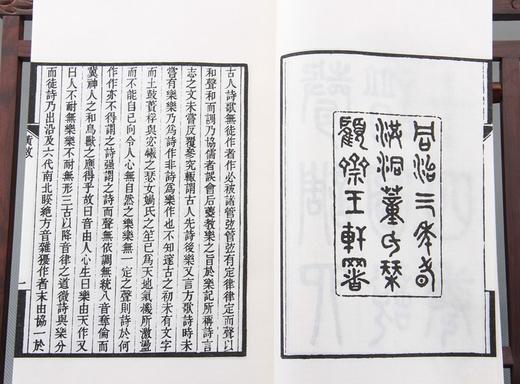 同治三年
洪洞董氏栞
顧齋王軒署
古人詩歌無徒作者作必被諸管弦管弦有定律律定而聲以
和聲和而訓乃協儒者誤會后夔教樂之旨於樂記所稱詩言
志之文未嘗反覆參究輒謂古人先詩後樂又言方歌詩時未
嘗有樂樂乃爲詩作非詩爲樂作也不知邃古之初未有文字
而土鼓蕢桴與宓羲之瑟女媧氏之笙已爲天地氣機所激盪
而不能自已向令人心無自然之樂樂無一定之聲則詩於何
作作亦不得謂之詩強謂之詩而聲無依調無統八音奪倫而
冀神人之和鳥獸之應得乎故曰音由人心生曰樂由天作又
曰人不耐無樂樂不耐無形三古以降音律之道微詩與樂分
而徒詩乃出沿及六代南北暌絕方音雜糅作者末由協一於
黃敘
一